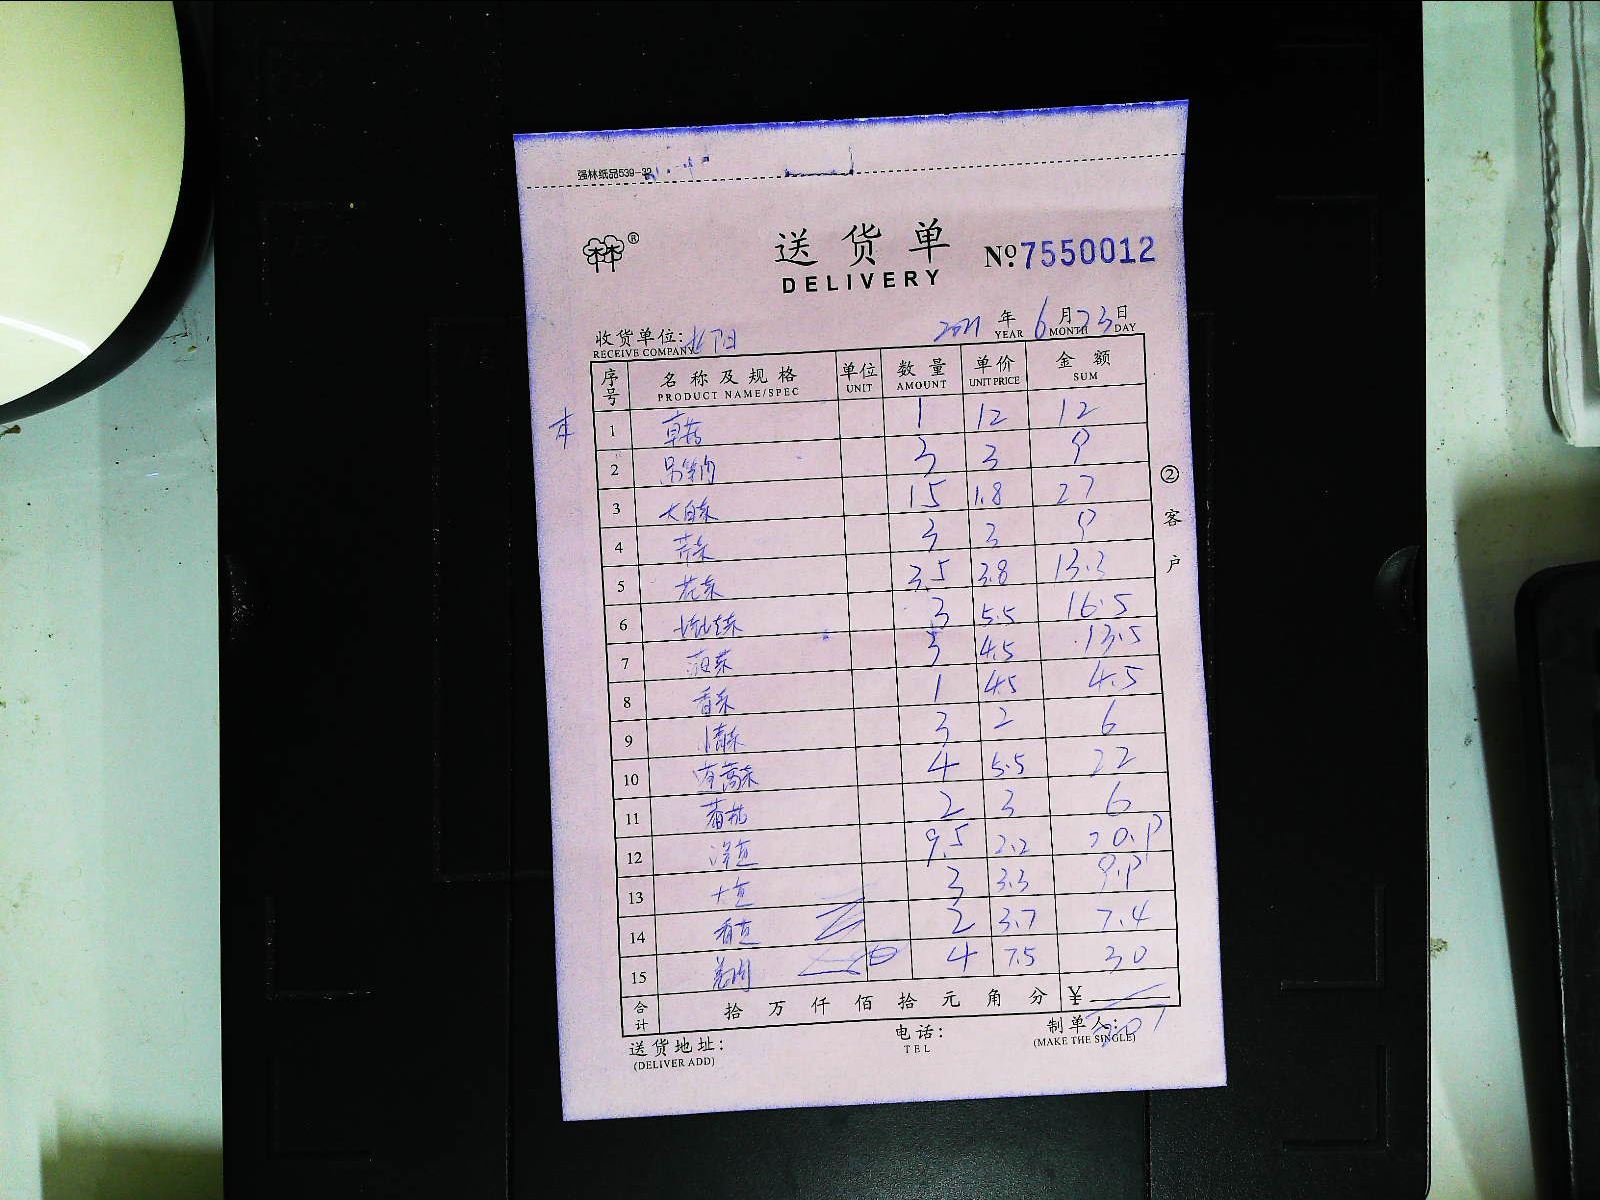 强林纸品539-32
®
送货单
№ 7550012
DELIVERY
收货单位: 2021 年 6 月 23 日
RECEIVE COMPANY YEAR MONTH DAY
序号 名称及规格 单位 数量 单价 金额
PRODUCT NAME/SPEC UNIT AMOUNT UNIT PRICE SUM
1 1 12 12
2 3 3 9
3 大白菜 15 1.8 27
4 3 3 9
5 花菜 3.5 3.8 13.3
6 3 5.5 16.5
7 菠菜 3 4.5 13.5
8 香菜 1 4.5 4.5
9 3 2 6
10 4 5.5 22
11 2 3 6
12 9.5 2.2 20.9
13 3 3.3 9.9
14 2 3.7 7.4
15 4 7.5 30
合计 拾 万 仟 佰 拾 元 角 分 ¥
② 客户
送货地址: 电话: 制单人:
(DELIVER ADD) TEL (MAKE THE SINGLE)